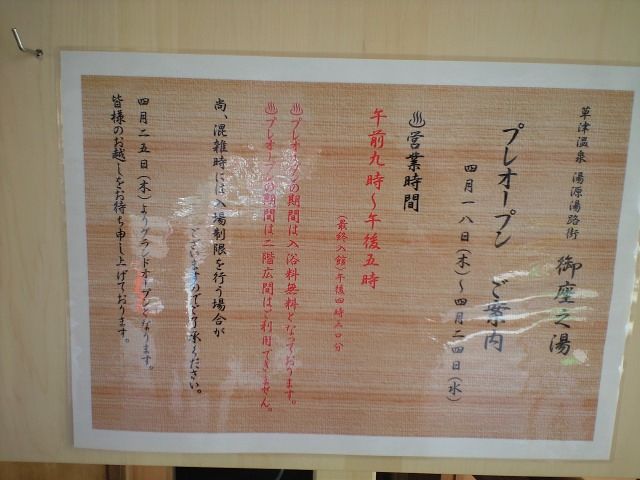 草津温泉 湯源湯路街 御座之湯
プレオープン ご案内
四月一八日(木)〜四月二四日(水)
♨営業時間
午前九時〜午後五時
(最終入館)午後四時三〇分
♨プレオープンの期間は入浴料無料となっております。
♨プレオープンの期間は二階広間はご利用できません。
尚、混雑時には入場制限を行う場合が
ございますのでご了承ください。
四月二五日(木)よりグランドオープンとなります。
皆様のお越しをお待ち申し上げております。